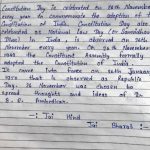 Constitution Day is celebrated on 26th November
every year to commemorate the adoption of the
Constitution of India. Constitution Day also
celebrated as National Law Day
in India is observed on 26th
November every year. On 26th November
1949 the Constituent Assembly formally
adopted the Constitution of India
came into force on 26th January
1950 that is observed as Republic
Day. 26 November was chosen to
spread thoughts and ideas of Dr.
B. R. Ambedkar.
Jai Hind
Jai Bharat